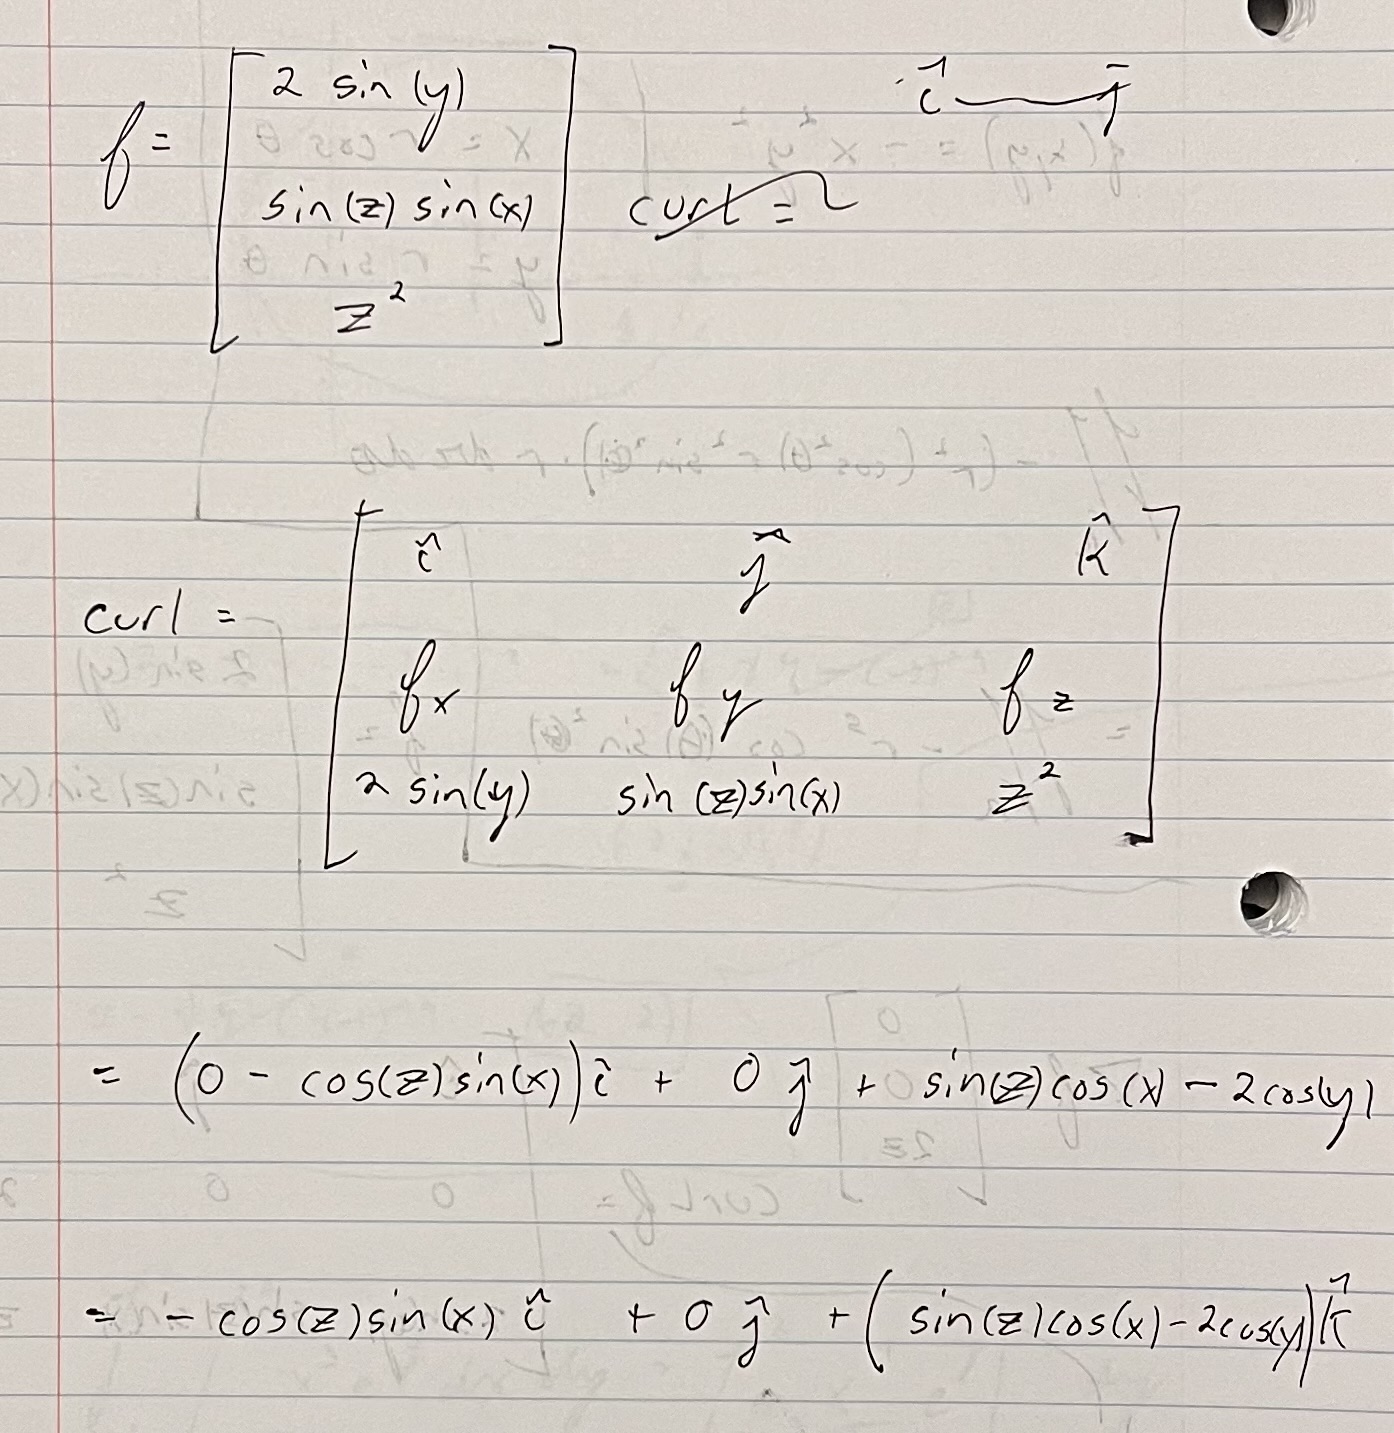 f = [ 2 sin (y)
sin(z) sin(x)
z² ]
curl =
î ĵ
curl = [ î ĵ k̂
fx fy fz
2 sin(y) sin (z)sin(x) z² ]
= (0 - cos(z)sin(x))î + 0 ĵ + sin(z)cos(x) - 2cos(y)
= - cos(z)sin(x) î + 0 ĵ + (sin(z)cos(x)-2cos(y))k̂